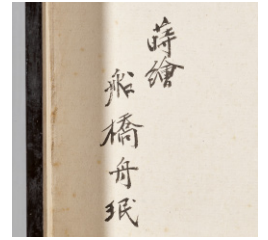 蒔繪
船橋舟珉